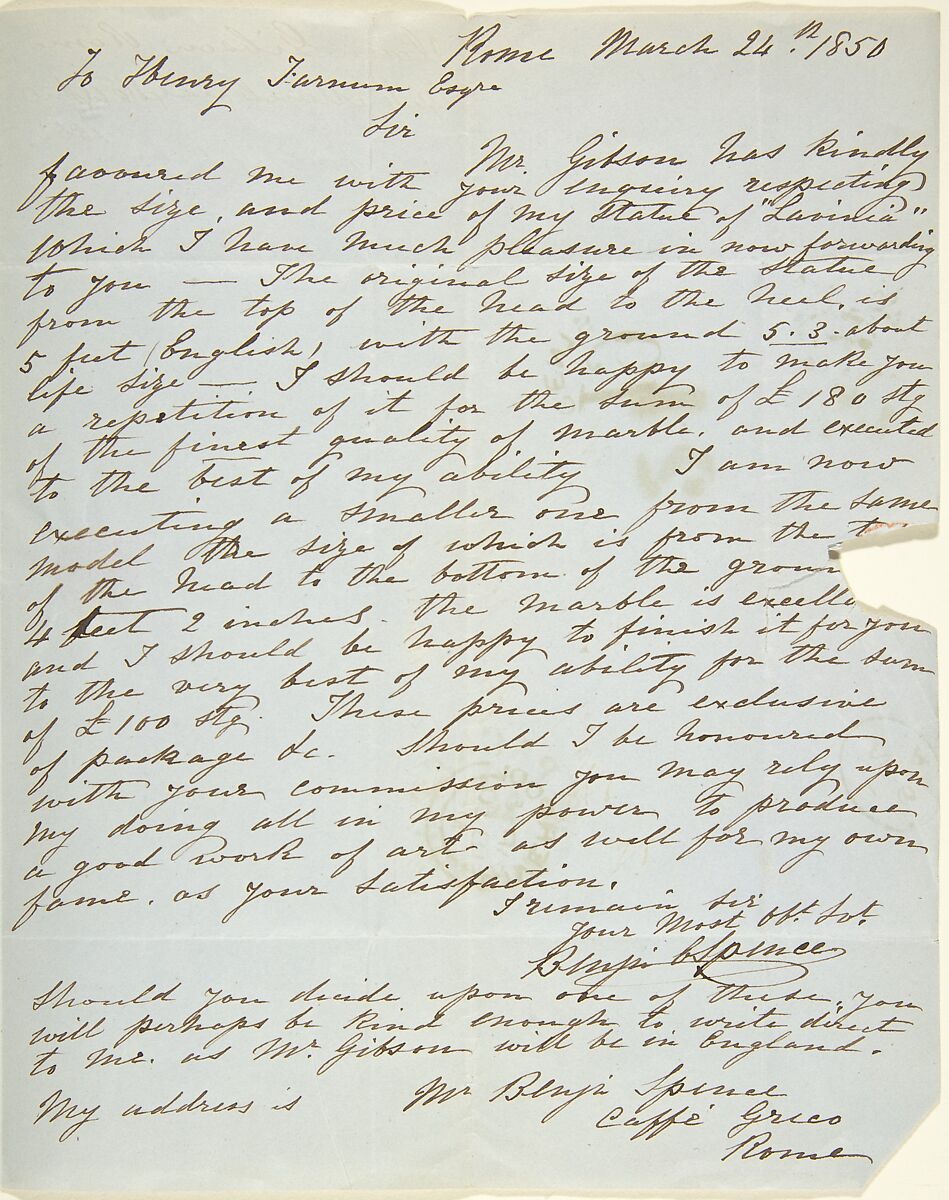 Rome March 24.th 1850
To Henry Farnum Esqre
Sir
Mr. Gibson has kindly
favoured me with your inquiry respecting
the size, and price of my statue of "Lavinia"
which I have much pleasure in now forwarding
to you — The original size of the statue
from the top of the head to the heel, is
5 feet (English) with the ground 5.3. about
life size — I should be happy to make you
a repetition of it for the sum of £180 stg
of the finest quality of marble, and executed
to the best of my ability I am now
executing a smaller one from the same
model the size of which is from the t
of the head to the bottom of the groun
4 feet 2 inches. the marble is excelle
and I should be happy to finish it for you
to the very best of my ability for the sum
of £100 stg. These prices are exclusive
of package &c. Should I be honoured
with your commission you may rely upon
my doing all in my power to produce
a good work of art as well for my own
fame. as your satisfaction.
I remain Sir
your Most Obt. Svt.
Benjn E Spence
Should you decide upon one of these, you
will perhaps be kind enough to write direct
to me. as Mr. Gibson will be in England.
My address is Mr Benjn Spence
Caffé Greco
Rome